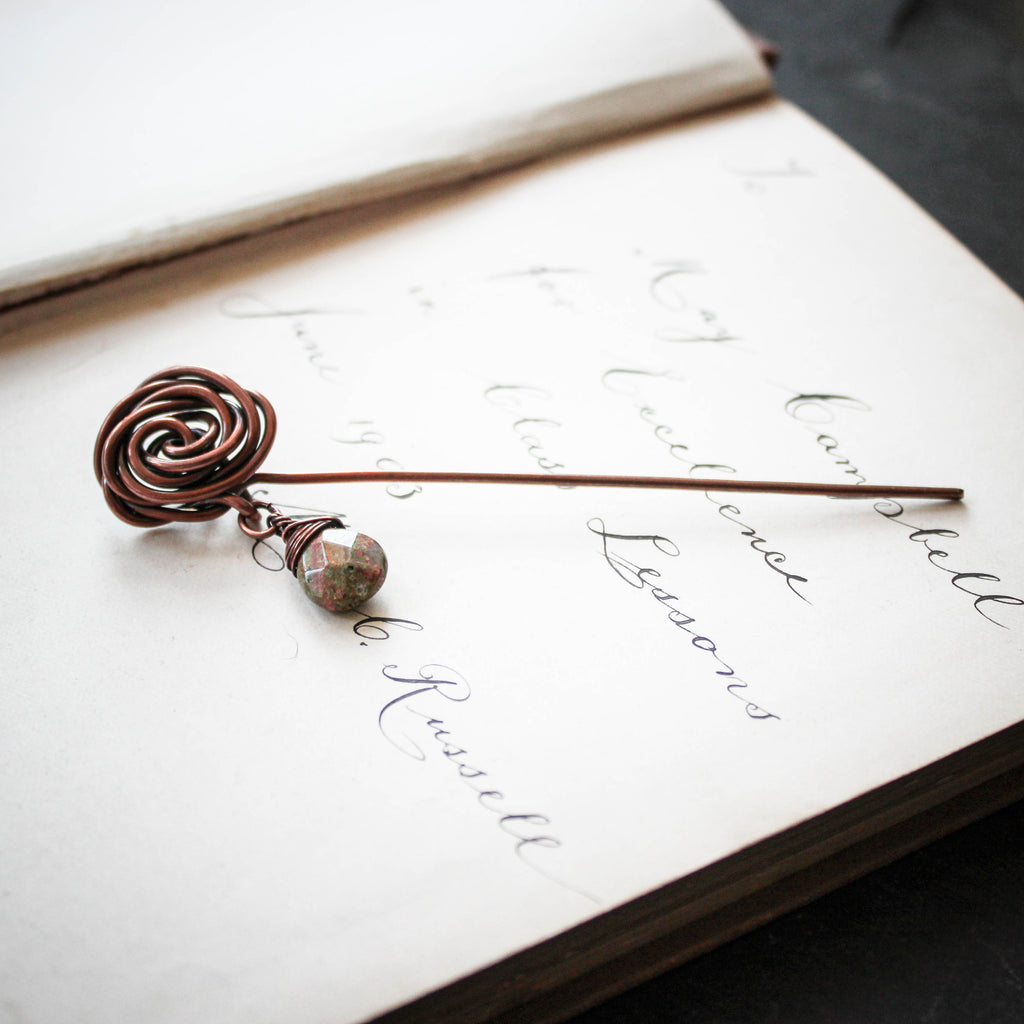 To
May Campbell
for Excellence
in Class Lessons
June 1903
C. Russell